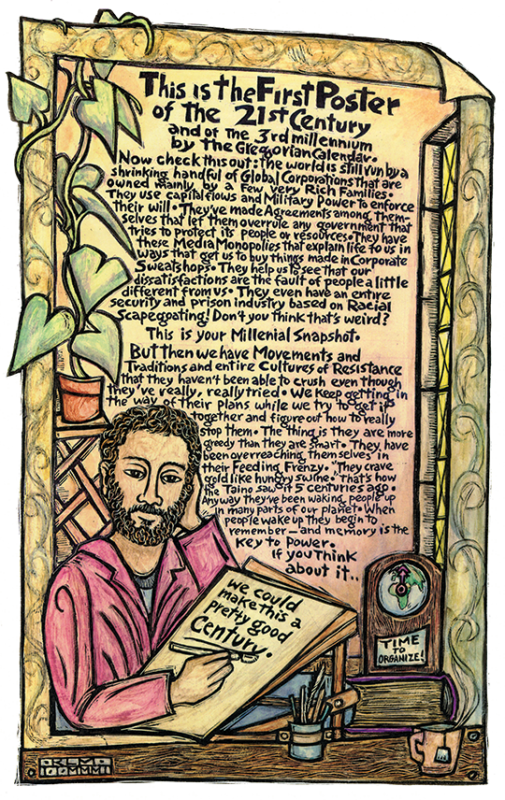 This is the First Poster
of the 21st Century
and of the 3rd millennium
by the Gregorian Calendar.
Now check this out: the world is still run by a
shrinking handful of Global Corporations that are
owned mainly by a Few very Rich Families.
They use capital flows and Military Power to enforce
their will. They've made Agreements among them-
selves that let them overrule any government that
tries to protect its people or resources. They have
these Media Monopolies that explain life to us in
ways that get us to buy things made in Corporate
Sweatshops. They help us to see that our
dissatisfactions are the fault of people a little
different from us. They even have an entire
security and prison industry based on Racial
Scapegoating! Don't you think that's weird?
This is your Millenial Snapshot.
But then we have Movements and
Traditions and entire Cultures of Resistance
that they haven't been able to crush even though
they've really, really tried. We keep getting in
the way of their plans while we try to get it
together and figure out how to really
stop them. The thing is they are more
greedy than they are smart. They have
been overreaching themselves in
their Feeding Frenzy. "They crave
gold like hungry swine." That's how
the Taino saw it 5 centuries ago.
Anyway they've been waking people up
in many parts of our planet. When
people wake up they begin to
remember — and memory is the
key to Power.
If you Think
about it..
we could
make this a
pretty good
Century.
TIME
TO
ORGANIZE!
RLM